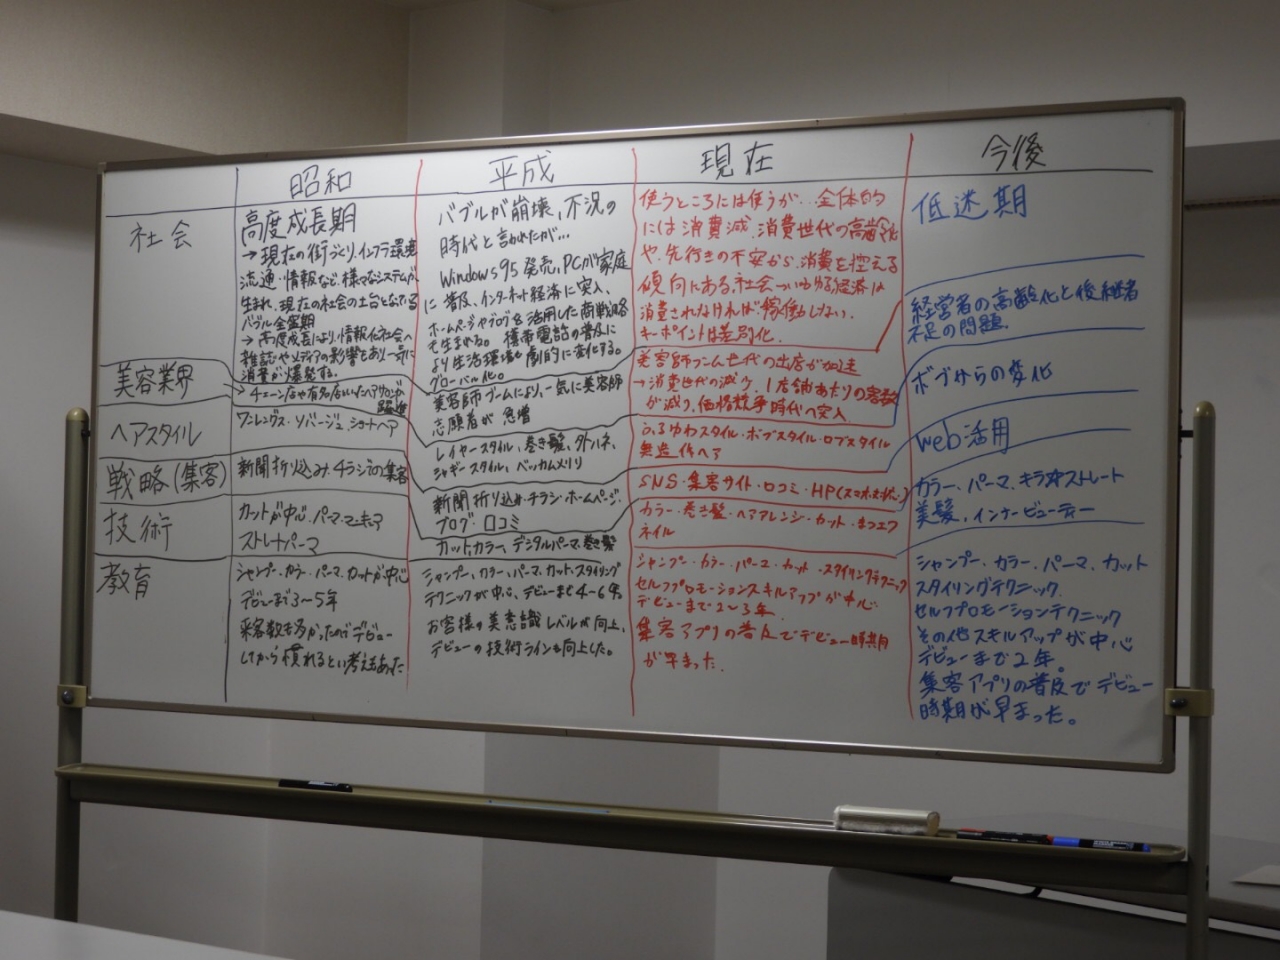 昭和
平成
現在
今後
社会
高度成長期
→現在の街づくり、インフラ環境
流通・情報など、様々なシステムが
生まれ、現在の社会の土台となている
バブル全盛期
→高度成長により、情報化社会へ
雑誌やメディアの影響もあり一気に
消費が爆発する。
バブルが崩壊、不況の
時代と言われたが…
Windows95発売、PCが家庭
に普及、インターネット経済に突入、
ホームページやブログを活用した商戦略
も生まれる。携帯電話の普及に
より生活環境も劇的に変化する。
グローバル化。
使うところには使うが…全体的
には消費減、消費世代の高齢化
や、先行きの不安から、消費を控える
傾向にある。社会いわゆる経済は
消費されなければ稼働しない。
キーポイントは差別化。
低迷期
美容業界
→チェーン店や有名店といったヘアサロンが
美容師ブームにより、一気に美容師
志願者が急増
美容師ブーム世代の出店が加速
→消費世代の減少、1店舗あたりの客数
が減り、価格競争時代へ突入
経営者の高齢化と後継者
不足の問題.
ヘアスタイル
ワンレングス・ソバージュ・ショートヘア
レイヤースタイル、巻き髪、外ハネ、
シャギースタイル、ベッカムメリリ
ふるゆわスタイル・ボブスタイル・ロブスタイル
無造作ヘア
ボブからの変化
戦略(集客)
新聞折り込みチラシでの集客
新聞折り込みチラシ・ホームページ・
ブログ・口コミ
SNS・集客サイト・口コミ・HP(スマホ
web活用
技術
カットが中心、パーマ、マニキュア
ストレートパーマ
カット、カラー、デジタルパーマ、巻き髪
カラー・巻き髪・ヘアアレンジ・カット・まつエク
ネイル
カラー、パーマ、キラ水ストレート
美髪、インナービューティー
教育
シャンプー、カラー、パーマ、カットが中心
デビューまで3～5年
来客数も多かったのでデビュー
してから慣れるという考えもあった
シャンプー、カラー、パーマ、カット、スタイリング
テクニックが中心、デビューまで4～6年
お客様の美意識レベルが向上、
デビューの技術ラインも向上した。
シャンプー・カラー・パーマ・カット・スタイリングテクニック
セルフプロモーションスキルアップが中心
デビューまで2～3年.
集客アプリの普及でデビュー時期
が早まった.
シャンプー、カラー、パーマ、カット
スタイリングテクニック.
セルフプロモーションテクニック
その他スキルアップが中心
デビューまで2年。
集客アプリの普及でデビュー
時期が早まった。